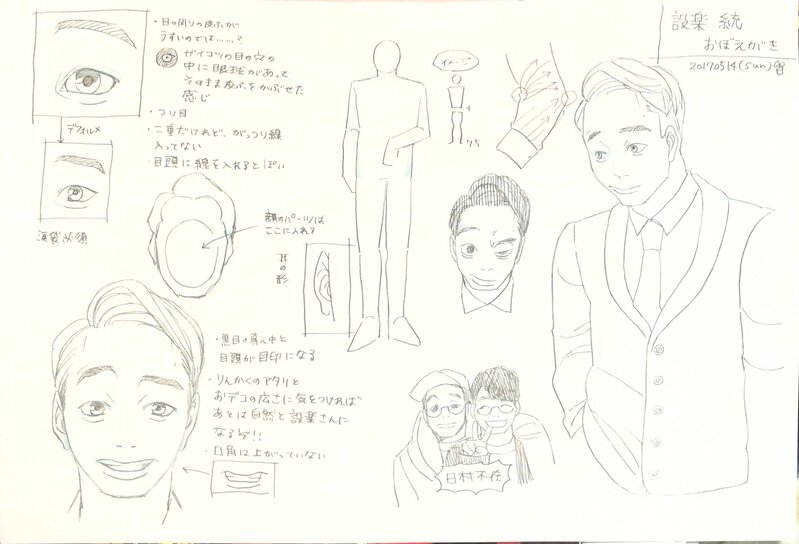 設楽 統
おぼえがき
20170514(sun)
・目の周りの皮ふが
うすいのでは……?
ガイコツの目の穴の
中に眼球があって
そのまま皮ふをかぶせた
感じ
・つり目
・二重だけれど、がっつり線
入ってない
・目頭に線を入れると ぽい
デフォルメ
涙袋必須
顔のパーツは
ここに入れる
耳の形
イメージ
4
7.5
・黒目の真ん中と
目頭が目印になる
・りんかくのアタリと
おデコの広さに気をつければ
あとは自然と設楽さんに
なるぞ!!
・口角は上がっていない
日村不在